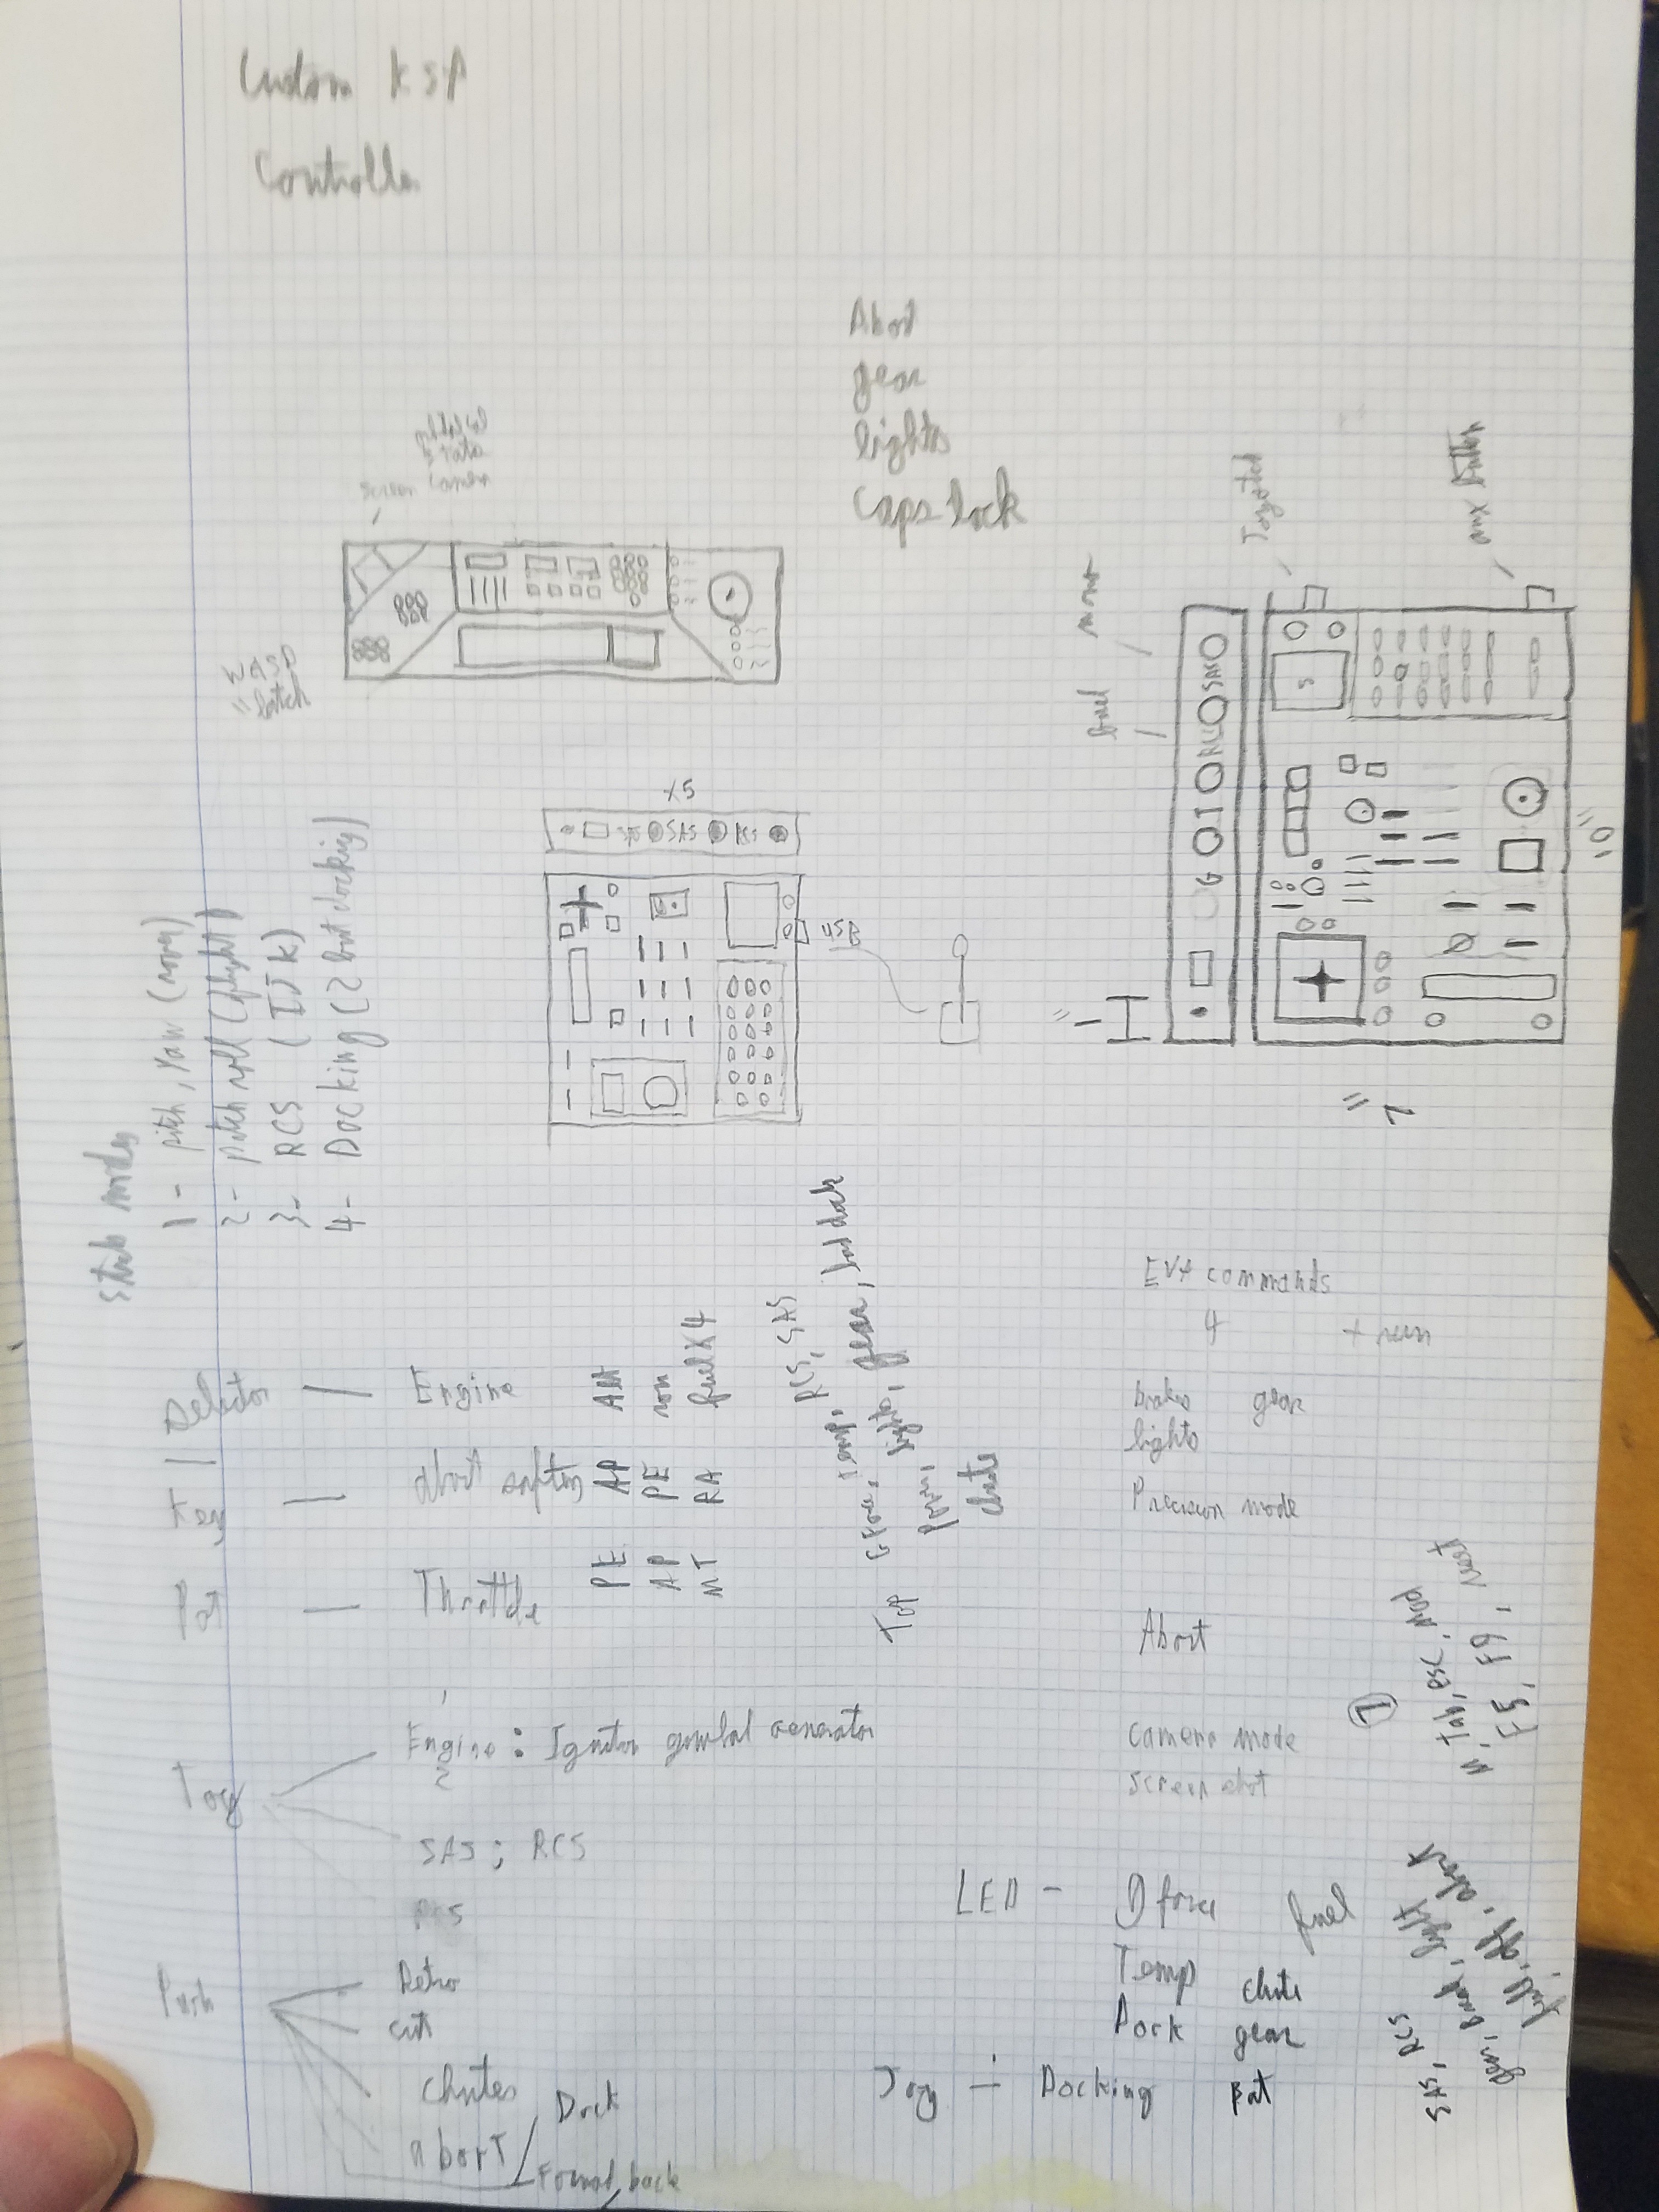 Custom KSP
Controller
Abort
gear
lights
Caps lock
WASD
switch
x5
SAS
RCS
USB
fuel
mono
Joystick
aux button
1"
G T RCS SAS
7"
10"
stick modes
1- pitch, yaw (rover)
2- pitch roll (flight)
3- RCS (IJK)
4- Docking (2 but docking)
Selector — Engine
Key — abort
Pot — Throttle
Alt
AP
PE
PE
AP
RA
MT
fuel x4
Tog
Engine: Ignition
SAS; RCS
Push
Retro
cut
chutes / Dock
abort / Forward, back
Top
G Force, temp, RCS, SAS
lights, gear,
chute
EVA commands
+ run
brakes gear
lights
Precision mode
Abort
camera mode
screen shot
LED - G force fuel
Temp chute
gear
Tog - Docking
SAS, RCS
light
full, off, abort
M, Tab, esc, Mod
F5, F9, reset